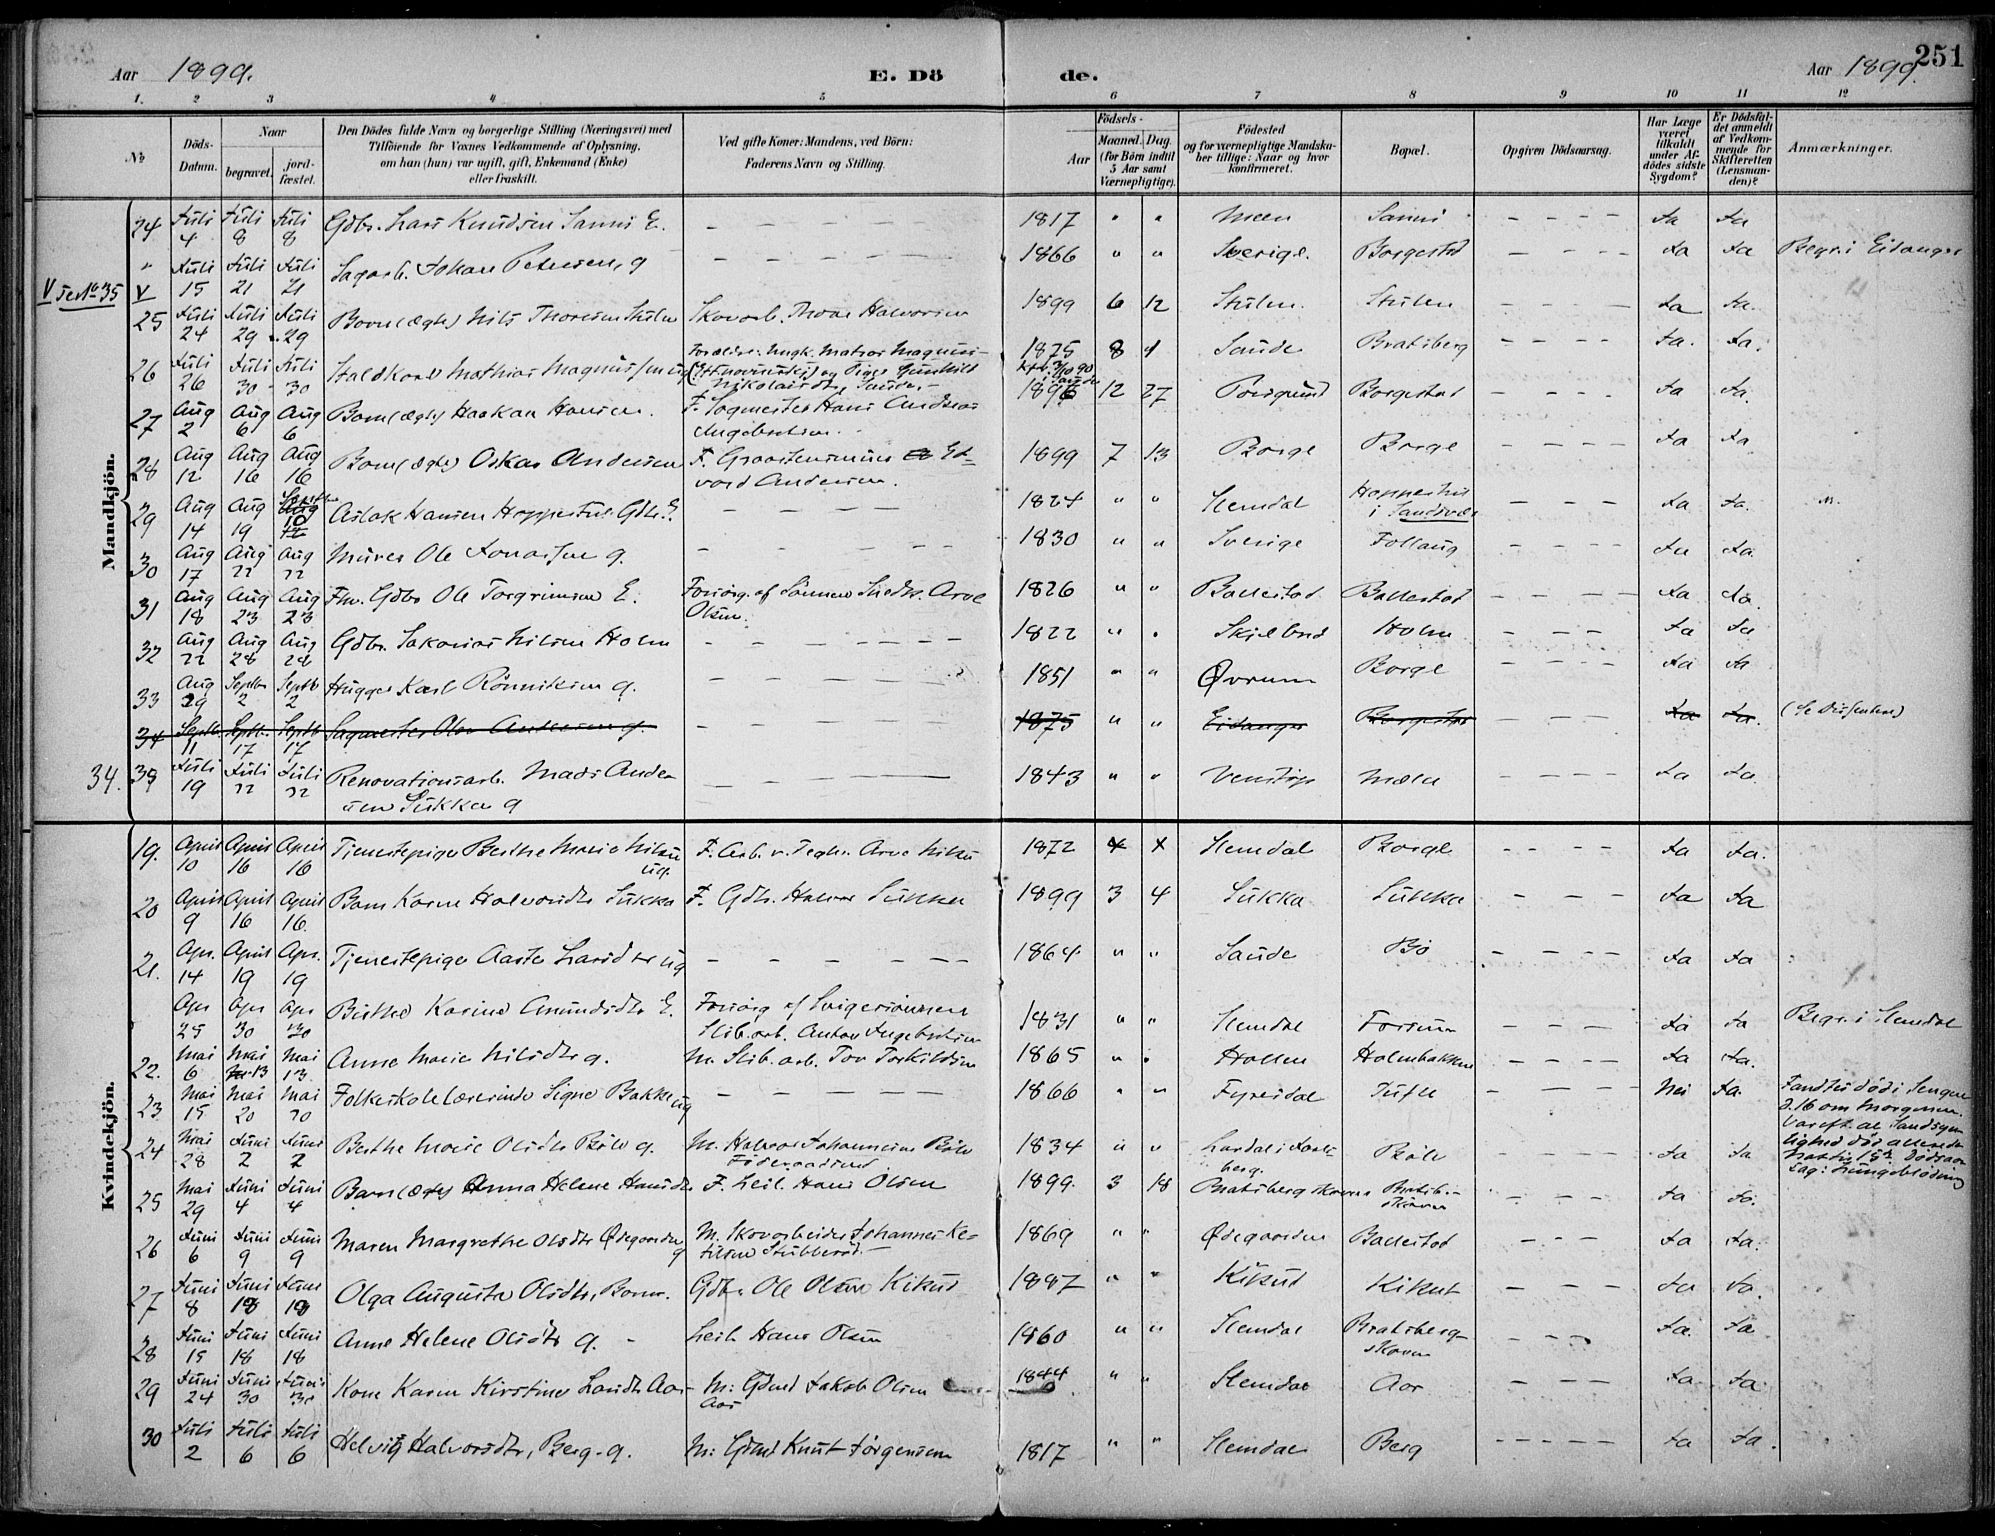 251
Aar 1899. E. Dö de. Aar 1899.
1. 2 3 4 5 6 7 8 9 10 11 12
№ Döds-Datum. Naar begravet. jord-fæstet. Den Dödes fulde Navn og borgerlige Stilling (Næringsvei) med Tilföiende for Voxnes Vedkommende af Oplysning, om han (hun) var ugift, gift, Enkemand (Enke) eller fraskilt. Ved gifte Koner: Mandens, ved Börn: Faderens Navn og Stilling. Aar Födsels- Maaned. Dag. (for Börn indtil 5 Aar samt Værnepligtige). Födested og for værnepligtige Mandskaber tillige: Naar og hvor konfirmeret. Bopæl. Opgiven Dödsaarsag. Har Læge været tilkaldt under Afdödes sidste Sygdom? Er Dödsfaldet anmeldt af Vedkommende for Skifteretten (Lensmanden)? Anmærkninger.
Mandkjön.
24 Juli 4 Juli 8 Juli 8 Gdbr. Lars Knudsen Sanni E. – – – 1817 " " Sanni – – – Ja Ja
" Juli 15 Juli 21 Juli 21 Sagarb. Johan Petersen, g – – – 1866 " " Sverige Borgestad – – – Ja Ja Begr. i Eidanger
V se № 35 V
25 Juli 24 Juli 29 Juli 29 Barn (ægte) Nils Thoresen Stulen Skovarb. Thore Halvorsen 1899 6 12 Stulen Stulen – – – Ja Ja.
26 Juli 26 Juli 30 Juli 30 Staldkarl Mathias Magnussen ug Forældre: Ungk. Matias Magnus- og Pige Gunhild Nikolaisdtr, Saude. 1875 8 4 Saude Bratsberg – – – Ja. Ja.
27 Aug 2 Aug 6 Aug 6 Barn (ægte) Haakon Hansen. F. Sagmester Hans Andreas Engebretsen. 1896 12 27 Porsgrund Borgestad – – – Ja Ja.
28 Aug 12 Aug 16 Aug 16 Barn (ægte) Oskar Andersen F. Graastensminer Edvard Andersen. 1899 7 13 Borge Borge Ja Ja
29 Aug 14 Aug 19 Septbr 10 Aslak Hansen Hoppestul Gdbr. E. – – – 1824 " " Slemdal Hoppestul i Sandsvær – – – Ja Ja.
30 Aug 17 Aug 22 Aug 22 Murer Ole Jonassen g. – – – 1830 " " Sverige Follaug – – – Ja Ja.
31 Aug 18 Aug 23 Aug 23 Fhv. Gdbr Ole Torgrimsen E. Forsörg. af Sönnen Snedk. Arve Olsen. 1826 " " Ballestad Ballestad – – – Ja Ja.
32 Aug 22 Aug 28 Aug 28 Gdbr. Sakarias Nilsen Holm – – – 1822 " " Skilbred Holm – – – Ja Ja
33 Aug 29 Septbr 2 Septbr 2 Hugger Karl Rönniksen g. – – – 1851 " " Øvrum Borge – – – Ja Ja
34 Septb. 11 Septb. 17 Septb 17 Sagmester Olav Andersen g. – – – 1875 " " Eidanger Borgestad Ja Ja.
34. 35 Juli 19 Juli 22 Juli 22 Renovationsarb. Mads Andersen Sukka g – – – 1843 " " Venstöp Mæla – – – Ja Ja.
Kvindekjön.
19. April 10 April 16 April 16 Tjenestepige Berthe Marie Nilsen ug. F. Arb. v. Teglv. Arve Nilsen 1872 Slemdal Borge – – – Ja Ja.
20 April 9 April 16 April 16. Barn Karen Halvorsdtr Sukka F. Gdbr. Halvor Sukka 1899 3 4 Sukka Sukka – – – Ja Ja
21. Apr. 14 April 19 Apr. 19 Tjenestepige Aaste Larsdtr ug – – – 1864 " " Saude Bö – – – Ja Ja
Apr 25 Apr 30 Apr 30 Berthe Karine Amundsdtr E. Forsörg af Svigersönnen Slib. arb. Anton Engebretsen 1831 " " Slemdal Fossum – – – Ja Ja Begr. i Slemdal
22. Mai 6 Mai 13 Mai 13 Anne Marie Nilsdtr g. M. Slib. arb. Tov Torkildsen 1865 " " Hollen Holmbakken – – – Ja Ja.
23. Mai 15 Mai 20 Mai 20 Folkeskolelærerinde Signe Bakke ug – – – 1866 " " Fyresdal Tufte – – – Nei Ja. Fandtes död i Sengen d. 16 om Morgenen. Var eft. al Sandsynlighed död allerede Dödsaarsag: Lungeblödning
24 Mai 28 Juni 2 Juni 2 Berthe Marie Olsdtr Böle g. M. Halvor Johannesen Böle Föderaadsmd 1834 " " Lardal i Jarlsberg. Böle Ja Ja
25 Mai 29 Juni 4 Juni 4 Barn (ægte) Anna Helene Hansdtr F. Leil. Hans Olsen 1899. 3 18 Bratsbergskoven Bratsb.-skoven – – – Ja Ja.
26 Juni 6 Juni 9 Juni 9 Maren Margrethe Olsdtr Ødegaarden g M. Skovarbeider Johannes Ketilsen Stubberöd. 1869 " " Ødegaarden Ballestad – – – Ja Ja.
27 Juni 8 Juni 18 Juni 18 Olga Augusta Olsdtr, Barn. Gdbr Ole Olsen Kikut 1887 " " Kikut Kikut – – – Ja Ja.
28 Juni 15 Juni 18 Juni 18 Anne Helene Olsdtr g. – Leil. Hans Olsen 1860 " " Slemdal Bratsberg-skoven – – – Ja. Ja
29 Juni 24 Juni 30 Juni 30 Kone Karen Kirstine Larsdtr Aas M: Gdmd Jakob Olsen Aas 1844 " " Slemdal Aas – – – Ja Ja
30 Juli 2 Juli 6 Juli 6 Helvig Halvorsdtr, Berg. g. M: Gdmd Knut Jörgensen 1817 " " Slemdal Berg – – – Ja Ja.